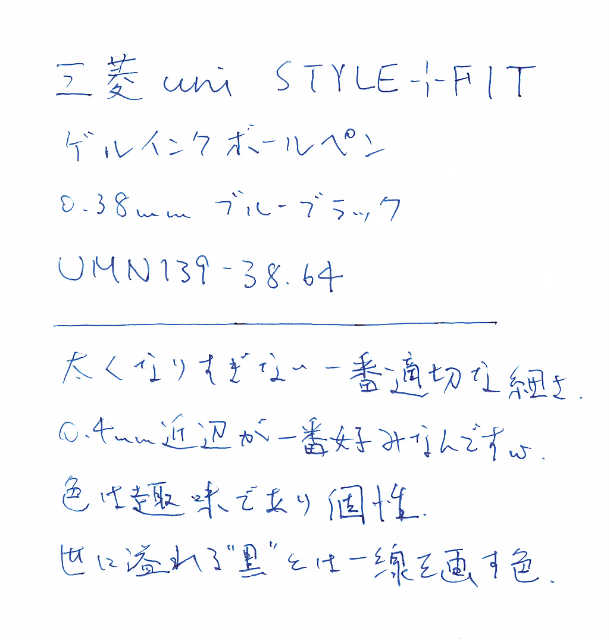 三菱 uni STYLE-+-FIT
ゲルインクボールペン
0.38mm ブルーブラック
UMN139-38.64
太くなりすぎない一番適切な細さ.
0.4mm近辺が一番好みなんですw.
色は趣味であり個性.
世に溢れる"黒"とは一線を画す色.